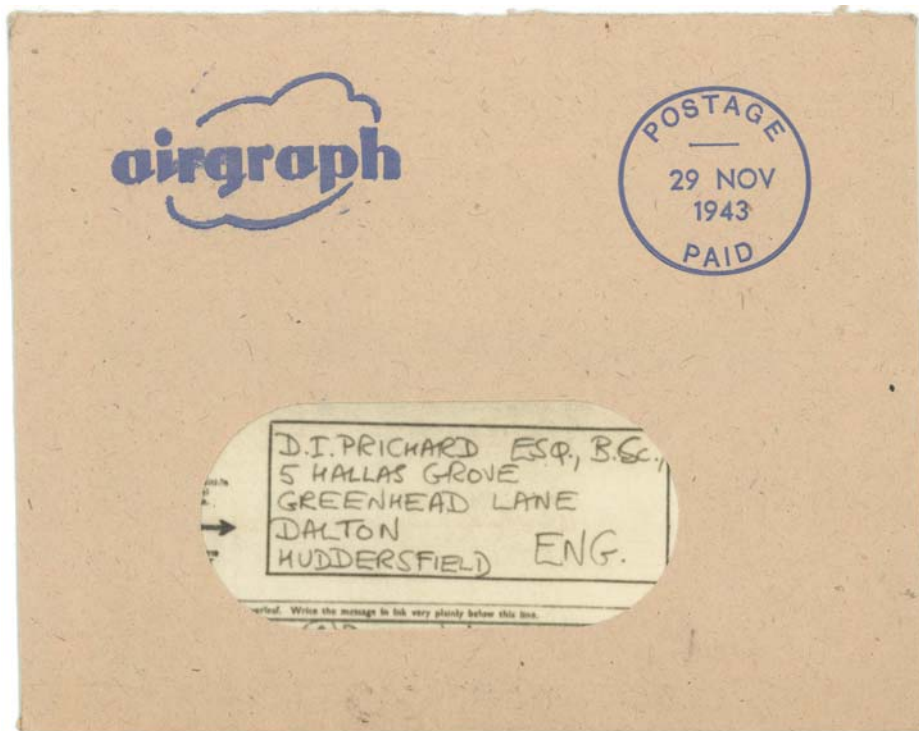 airgraph
POSTAGE
29 NOV
1943
PAID
D.I. PRICHARD ESQ., B.Sc.,
5 HALLAS GROVE
GREENHEAD LANE
DALTON
HUDDERSFIELD ENG.
overleaf. Write the message in ink very plainly below this line.